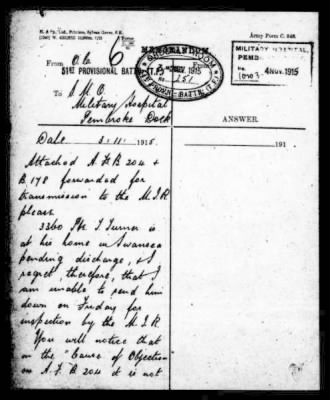 Army Form C. 348.
MEMORANDUM
From O.C. 6
51ST PROVISIONAL BATTN. (T.F.)
ORDERLY ROOM
3 NOV. 1915
No. 151
MILITARY HOSPITAL,
PEMB
No. 1003 4 NOV. 1915
From
To S.M.O.
Military Hospital
Pembroke Dock
ANSWER.
Date 3.11.1915.
191 .
Attached A.F.B 204 &
B.178 forwarded for
transmission to the M.I.R
please.
3360 Pte T Turner is
at his home in Swansea
pending discharge, & I
regret therefore, that I
am unable to send him
down on Friday for
inspection by the M.I.R.
You will notice that
on the "Cause of Objection
on A.F.B 204 it is not